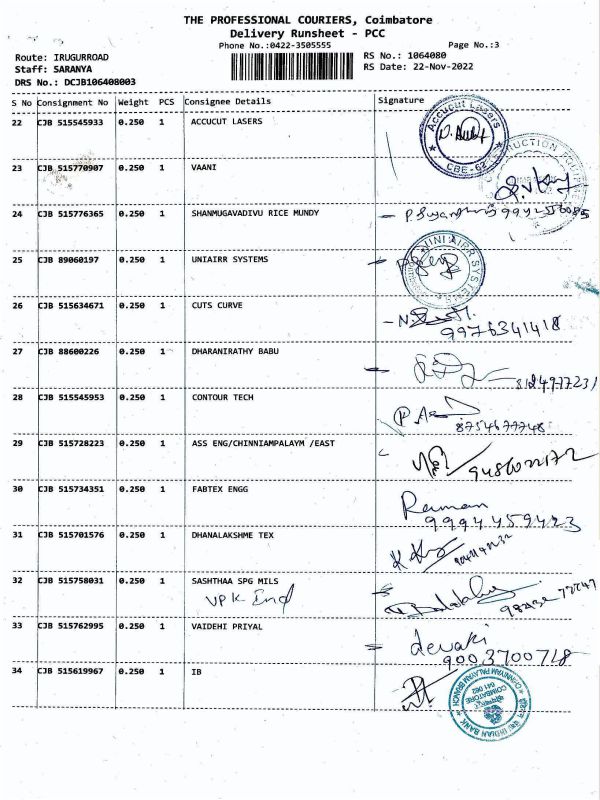 THE PROFESSIONAL COURIERS, Coimbatore
Delivery Runsheet - PCC
Phone No.:0422-3505555 Page No.:3
Route: IRUGURROAD RS No.: 1064080
Staff: SARANYA RS Date: 22-Nov-2022
DRS No.: DCJB106408003
S No Consignment No Weight PCS Consignee Details Signature
22 CJB 515545933 0.250 1 ACCUCUT LASERS
Accucut Lasers
CBE-62
23 CJB 515770907 0.250 1 VAANI
24 CJB 515776365 0.250 1 SHANMUGAVADIVU RICE MUNDY
25 CJB 89060197 0.250 1 UNIAIRR SYSTEMS
26 CJB 515634671 0.250 1 CUTS CURVE
9976341418
27 CJB 88600226 0.250 1 DHARANIRATHY BABU
8124977231
28 CJB 515545953 0.250 1 CONTOUR TECH
8754677748
29 CJB 515728223 0.250 1 ASS ENG/CHINNIAMPALAYM /EAST
30 CJB 515734351 0.250 1 FABTEX ENGG
Raman
9994459423
31 CJB 515701576 0.250 1 DHANALAKSHME TEX
32 CJB 515758031 0.250 1 SASHTHAA SPG MILS
VPK Ind
33 CJB 515762995 0.250 1 VAIDEHI PRIYAL
devaki
9003700718
34 CJB 515619967 0.250 1 IB
INDIAN BANK
COIMBATORE
641 062